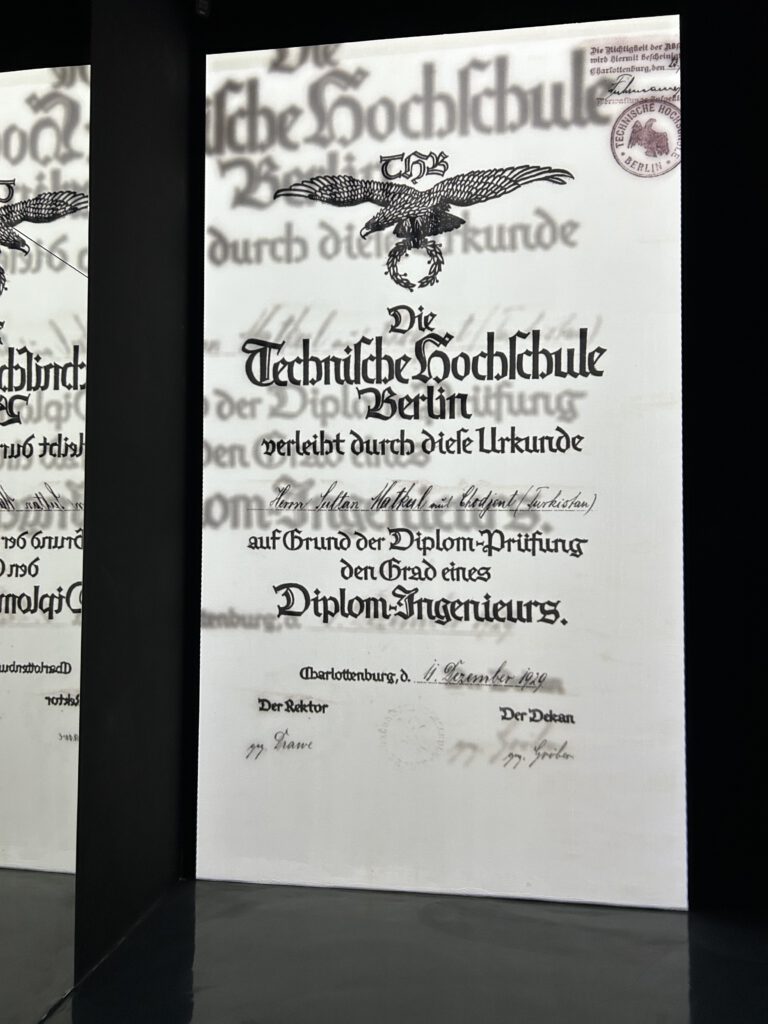 Die Richtigkeit der Abs
wird hiermit bescheinig
Charlottenburg, den
TECHNISCHE HOCHSCHULE
BERLIN
THB
Die
Technische Hochschule
Berlin
verleiht durch diese Urkunde
Herrn Sultan Matkul aus Chodjent (Turkistan)
auf Grund der Diplom-Prüfung
den Grad eines
Diplom-Ingenieurs.
Charlottenburg, d. 11. Dezember 1929
Der Rektor
Der Dekan
gez. Drawe
gez. Gröber